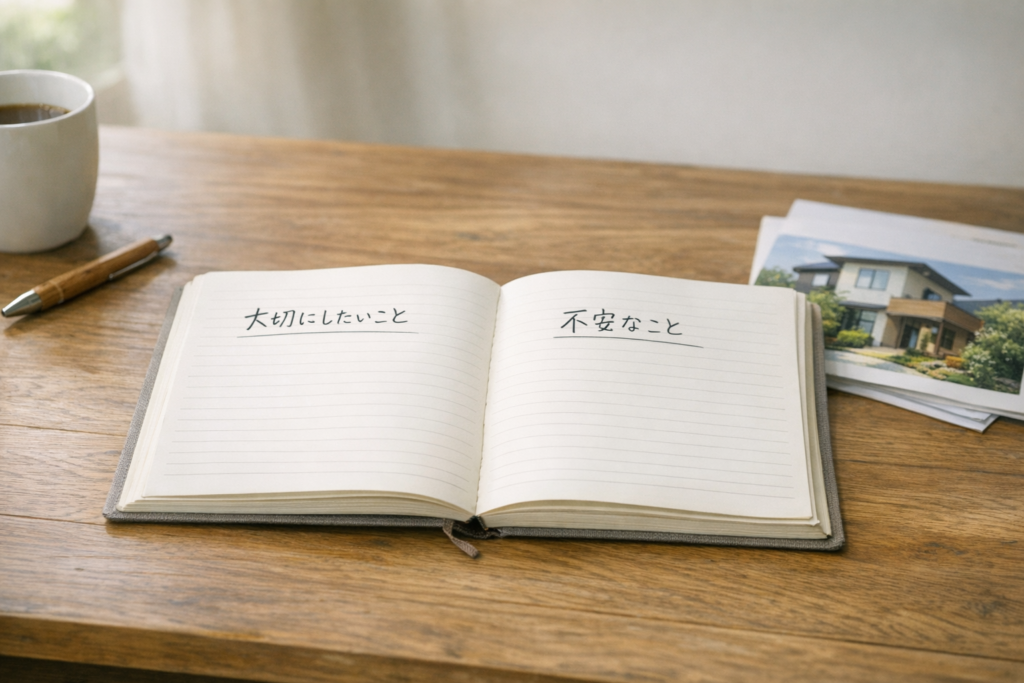 大切にしたいこと
不安なこと